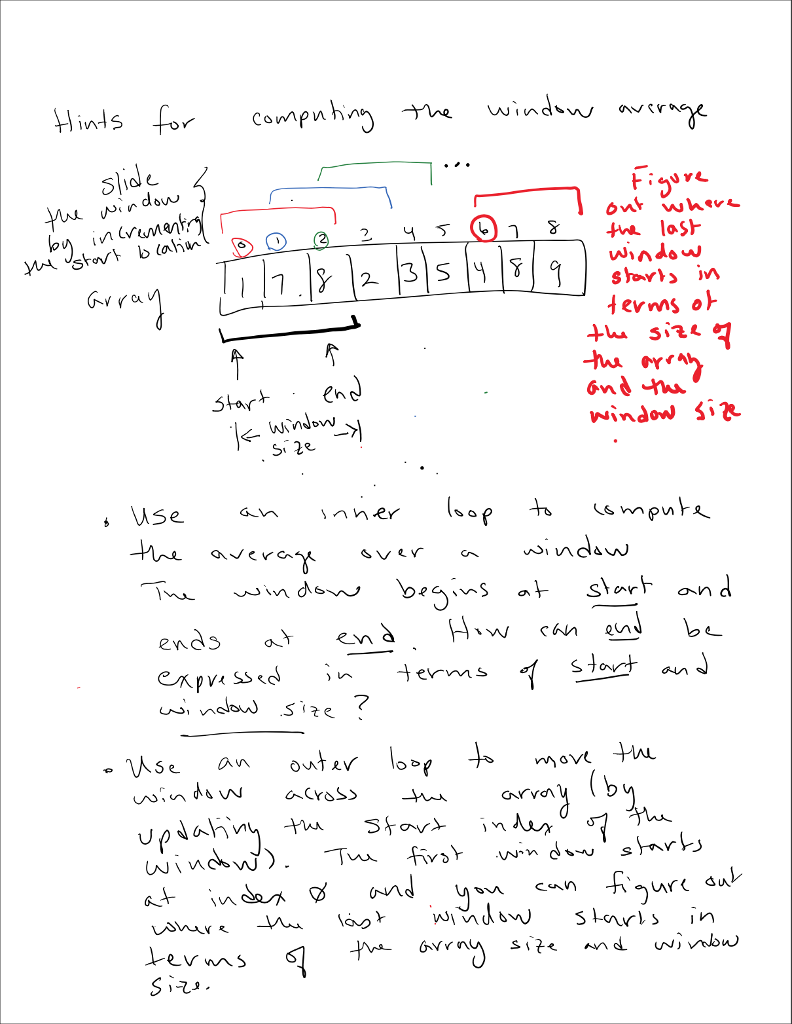 Hints for computing the window average
slide
the window
by incrementing
the start location
...
0 1 2 3 4 5 6 7 8
array
1 7 8 2 3 5 4 8 9
start end
window
size
Figure
out where
the last
window
starts in
terms of
the size of
the array
and the
window size
.
• Use an inner loop to compute
the average over a window
The window begins at start and
ends at end. How can end be
expressed in terms of start and
window size?
• Use an outer loop to move the
window across the array (by
updating the start index of the
window). The first window starts
at index 0 and you can figure out
where the last window starts in
terms of the array size and window
size.